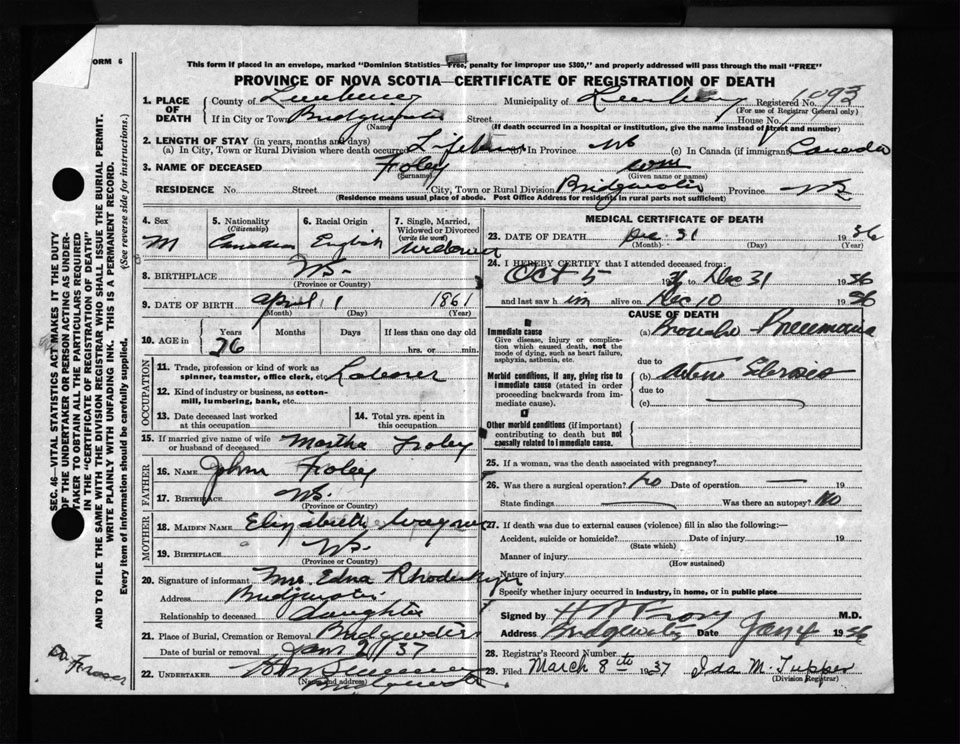 FORM 6
This form if placed in an envelope, marked "Dominion Statistics—Free, penalty for improper use $300," and properly addressed will pass through the mail "FREE"
PROVINCE OF NOVA SCOTIA—CERTIFICATE OF REGISTRATION OF DEATH
1. PLACE OF DEATH { County of Lunenburg Municipality of Lunenburg Registered No. 1093
(For use of Registrar General only)
If in City or Town Bridgewater Street House No.
(Name) (If death occurred in a hospital or institution, give the name instead of street and number)
2. LENGTH OF STAY (in years, months and days)
(a) In City, Town or Rural Division where death occurred Lifetime In Province NS (c) In Canada (if immigrant) Canada
3. NAME OF DECEASED Froley Wm
(Surname) (Given name or names)
RESIDENCE No. Street City, Town or Rural Division Bridgwater Province NS
(Residence means usual place of abode. Post Office Address for residents in rural parts not sufficient)
4. Sex M
5. Nationality (Citizenship) Canadian
6. Racial Origin English
7. Single, Married, Widowed or Divorced (write the word) Widowed
8. BIRTHPLACE NS-
(Province or Country)
9. DATE OF BIRTH April 1 1861
(Month) (Day) (Year)
10. AGE in Years Months Days If less than one day old
76 hrs. or min.
OCCUPATION
11. Trade, profession or kind of work as spinner, teamster, office clerk, etc. Laborer
12. Kind of industry or business, as cotton-mill, lumbering, bank, etc.
13. Date deceased last worked at this occupation
14. Total yrs. spent in this occupation
15. If married give name of wife or husband of deceased Martha Froley
FATHER
16. NAME John Froley
17. BIRTHPLACE NS-
(Province or Country)
MOTHER
18. MAIDEN NAME Elizabeth Wagner
19. BIRTHPLACE NS-
(Province or Country)
20. Signature of informant Mrs. Edna Rhodenhyer
Address Bridgwater
Relationship to deceased daughter
21. Place of Burial, Cremation or Removal Bridgewater
Date of burial or removal Jan 2/37
22. UNDERTAKER
(Name and address)
MEDICAL CERTIFICATE OF DEATH
23. DATE OF DEATH Dec 31 1936
(Month) (Day) (Year)
24. I HEREBY CERTIFY that I attended deceased from:
Oct 5 1936 to Dec 31 1936
and last saw him alive on Dec 10 1936
CAUSE OF DEATH
Immediate cause
Give disease, injury or complication which caused death, not the mode of dying, such as heart failure, asphyxia, asthenia, etc.
(a) Broncho Pneumonia
due to
Morbid conditions, if any, giving rise to immediate cause (stated in order proceeding backwards from immediate cause).
(b) Arterio Sclerosis
due to
(c)
Other morbid conditions (if important) contributing to death but not causally related to immediate cause.
25. If a woman, was the death associated with pregnancy?
26. Was there a surgical operation? No Date of operation — 19
State findings Was there an autopsy? No
27. If death was due to external causes (violence) fill in also the following:—
Accident, suicide or homicide? Date of injury 19
(State which)
Manner of injury
(How sustained)
Nature of injury
Specify whether injury occurred in industry, in home, or in public place
Signed by M.D.
Address Bridgewater Date Jan 4 1936
28. Registrar's Record Number
29. Filed March 8th 1937 Ida M. Tupper
(Division Registrar)
SEC. 46—VITAL STATISTICS ACT MAKES IT THE DUTY OF THE UNDERTAKER OR PERSON ACTING AS UNDERTAKER TO OBTAIN ALL THE PARTICULARS REQUIRED IN THE "CERTIFICATE OF REGISTRATION OF DEATH" AND TO FILE THE SAME WITH THE DIVISION REGISTRAR WHO SHALL ISSUE THE BURIAL PERMIT.
WRITE PLAINLY WITH UNFADING INK. THIS IS A PERMANENT RECORD.
Every item of information should be carefully supplied. (See reverse side for instructions.)